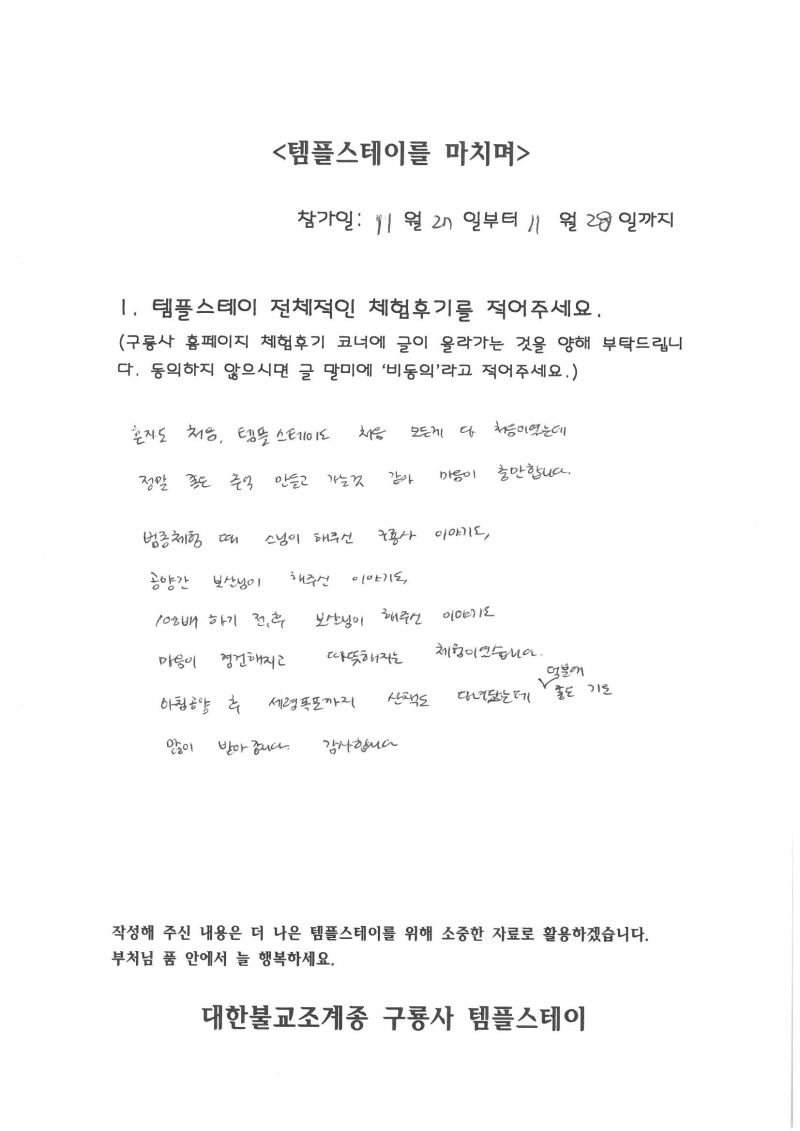 <템플스테이를 마치며>
참가일: 11 월 27 일부터 11 월 28 일까지
1. 템플스테이 전체적인 체험후기를 적어주세요.
(구룡사 홈페이지 체험후기 코너에 글이 올라가는 것을 양해 부탁드립니
다. 동의하지 않으시면 글 말미에 '비동의'라고 적어주세요.)
혼자도 처음, 템플스테이도 처음 모든게 다 처음이었는데
정말 좋은 추억 만들고 가는것 같아 마음이 충만합니다.
범종체험 때 스님이 해주신 구룡사 이야기도,
공양간 보살님이 해주신 이야기도,
108배 하기 전,후 보살님이 해주신 이야기도
마음이 경건해지고 따뜻해지는 체험이었습니다.
아침공양 후 세렴폭포까지 산책도 다녀왔는데 덕분에 좋은 기운
많이 받아 갑니다. 감사합니다
작성해 주신 내용은 더 나은 템플스테이를 위해 소중한 자료로 활용하겠습니다.
부처님 품 안에서 늘 행복하세요.
대한불교조계종 구룡사 템플스테이